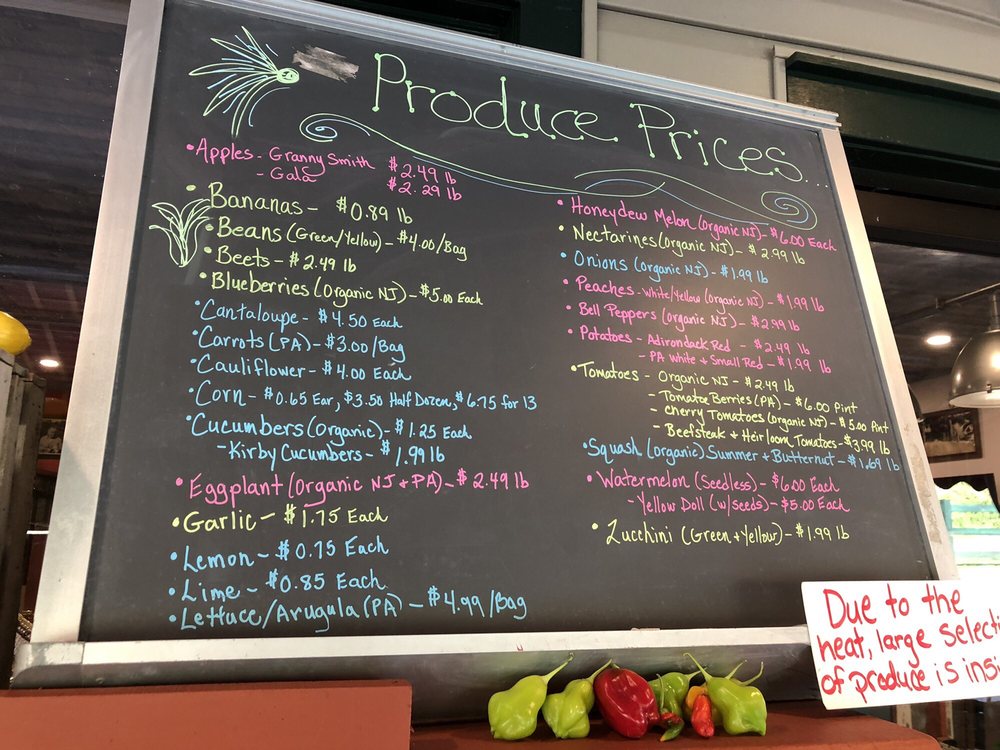 Produce Prices...
•Apples - Granny Smith $2.49 lb
- Gala $2.29 lb
•Bananas - $0.89 lb
•Beans (Green/Yellow) - $4.00/Bag
•Beets - $2.49 lb
•Blueberries (Organic NJ) - $5.00 Each
•Cantaloupe - $4.50 Each
•Carrots (PA) - $3.00/Bag
•Cauliflower - $4.00 Each
•Corn - $0.65 Ear, $3.50 Half Dozen, $6.75 for 13
•Cucumbers (Organic) - $1.25 Each
- Kirby Cucumbers - $1.99 lb
•Eggplant (Organic NJ + PA) - $2.49 lb
•Garlic - $1.75 Each
•Lemon - $0.75 Each
•Lime - $0.85 Each
•Lettuce/Arugula (PA) - $4.99/Bag
•Honeydew Melon (Organic NJ) - $6.00 Each
•Nectarines (Organic NJ) - $2.99 lb
•Onions (Organic NJ) - $1.99 lb
•Peaches - White/Yellow (Organic NJ) - $1.99 lb
•Bell Peppers (Organic NJ) - $2.99 lb
•Potatoes - Adirondack Red - $2.49 lb
- PA White + Small Red - $1.99 lb
•Tomatoes - Organic NJ - $2.49 lb
- Tomato Berries (PA) - $6.00 Pint
- Cherry Tomatoes (Organic NJ) - $5.00 Pint
- Beefsteak + Heirloom Tomatoes - $3.99 lb
•Squash (Organic) Summer + Butternut - $1.69 lb
•Watermelon (Seedless) - $6.00 Each
- Yellow Doll (w/seeds) - $5.00 Each
•Zucchini (Green + Yellow) - $1.99 lb
Due to the
heat, large selecti
of produce is insi